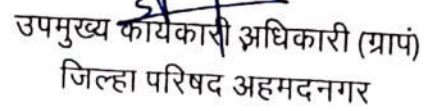 उपमुख्य कार्यकारी अधिकारी (ग्रापं)
जिल्हा परिषद अहमदनगर